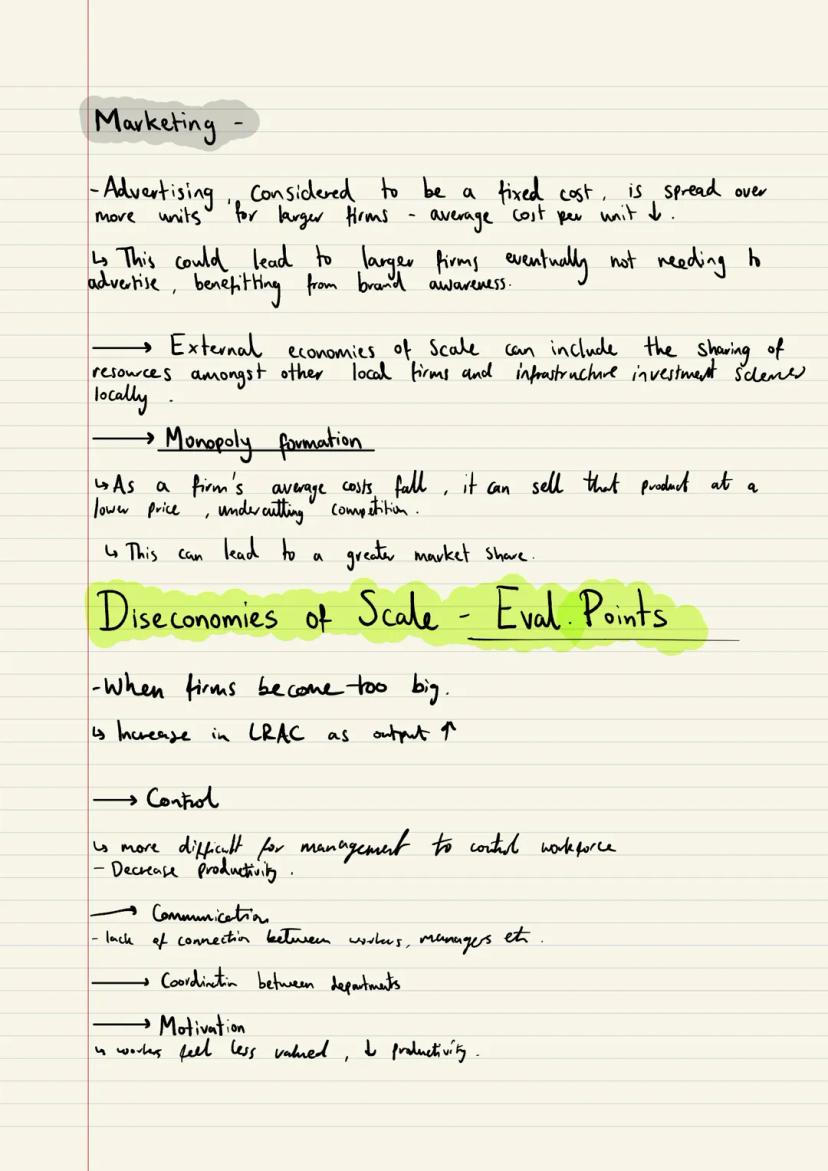 Marketing -
- Advertising, considered to be a fixed cost, is spread over
more units for larger firms - average cost per unit ↓.
↳ This could lead to larger firms eventually not needing to
advertise, benefitting from brand awareness.
⟶ External economies of scale can include the sharing of
resources amongst other local firms and infrastructure investment
locally.
⟶ Monopoly formation
↳ As a firm's average costs fall, it can sell that product at a
lower price, undercutting competition.
↳ This can lead to a greater market share.
Diseconomies of Scale - Eval. Points
- When firms become too big.
↳ Increase in LRAC as output ↑
⟶ Control
↳ more difficult for management to control workforce
- Decrease productivity.
⟶ Communication
- lack of connection between workers, managers etc.
⟶ Coordination between departments
⟶ Motivation
↳ workers feel less valued, ↓ productivity.